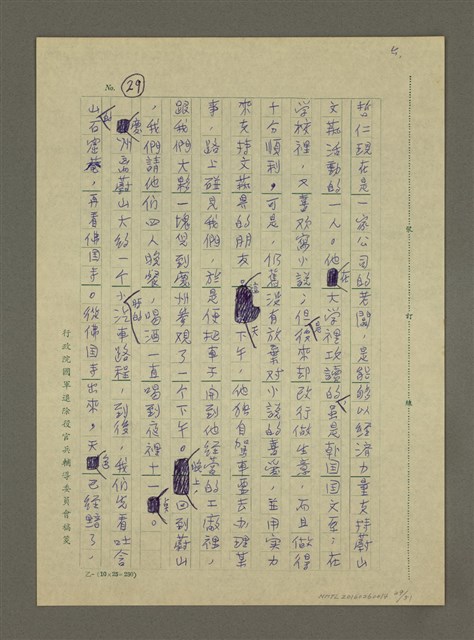 5.
No. 29
哲仁現在是一家公司的老闆,是能夠以經濟力量支持蔚山
文藝活動的一人。他在大学裡攻讀的雖是韓国国文系;在
学校裡,又喜欢寫小說;但是後來却改行做生意,而且做得
十分順利,可是,仍舊沒有放棄对小說的喜愛,並用实力
來支持文藝界的朋友。這天下午,他独自驾車要去办理某
事,路上碰見我們,於是便把車子開到他経営的工廠裡,
跟我們大夥一塊兒到慶州參观了一个下午。晚上,回到蔚山
,我們請他們四人晚餐,喝酒一直喝到夜裡十一点。
慶州离蔚山大約一个小時的汽車路程,到後,我們先看吐含
山的石窟菴,再看佛国寺。從佛国寺出來,天色已経黯了,
裝訂線
行政院國軍退除役官兵輔導委員會稿箋
乙—(10×25=250)
29/31